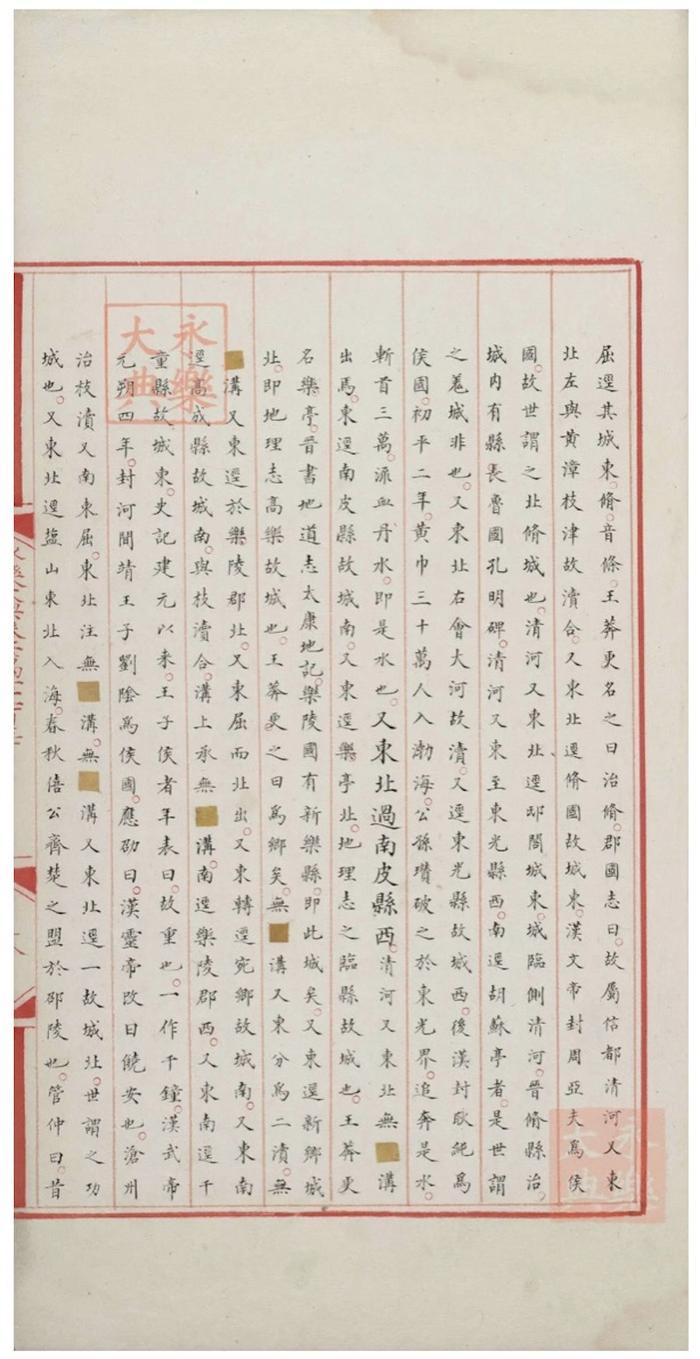 屈逕其城東。脩。音條。王莽更名之曰治脩。郡國志曰。故屬信都清河又東
北左與黄漳枝津故瀆合。又東北逕脩國故城東。漢文帝封周亞夫爲侯
國。故世謂之北脩城也。清河又東北逕邸閣城東。城臨側清河。晉脩縣治。
城内有縣長魯國孔明碑。清河又東至東光縣西。南逕胡蘇亭者。是世謂
之羗城非也。又東北右會大河故瀆。又逕東光縣故城西。後漢封耿純爲
侯國。初平二年。黄巾三十萬人入渤海。公孫瓚破之於東光界。追奔是水。
斬首三萬。流血丹水。即是水也。又東北過南皮縣西。清河又東北無溝
出焉。東逕南皮縣故城南。又東逕樂亭北。地理志之臨縣故城也。王莽更
名樂亭。晉書地道志太康地記。樂陵國有新樂縣。即此城矣。又東逕新鄉城
北。即地理志高樂故城也。王莽更之曰爲鄉矣。無溝又東分爲二瀆。無
溝又東逕於樂陵郡北。又東屈而北出。又東轉逕宛鄉故城南。又東南
逕高成縣故城南。與枝瀆合。溝上承無溝。南逕樂陵郡西。又東南逕千
童縣故城東。史記建元以来。王子侯者年表曰。故重也。一作千鐘。漢武帝
元朔四年。封河間靖王子劉陰爲侯國。應劭曰。漢靈帝改曰饒安也。滄州
治枝瀆又南東屈。東北注無溝。無溝又東北逕一故城北。世謂之功
城也。又東北逕塩山東北入海。春秋僖公齊楚之盟於邵陵也。管仲曰。昔
永樂大典
永樂大典